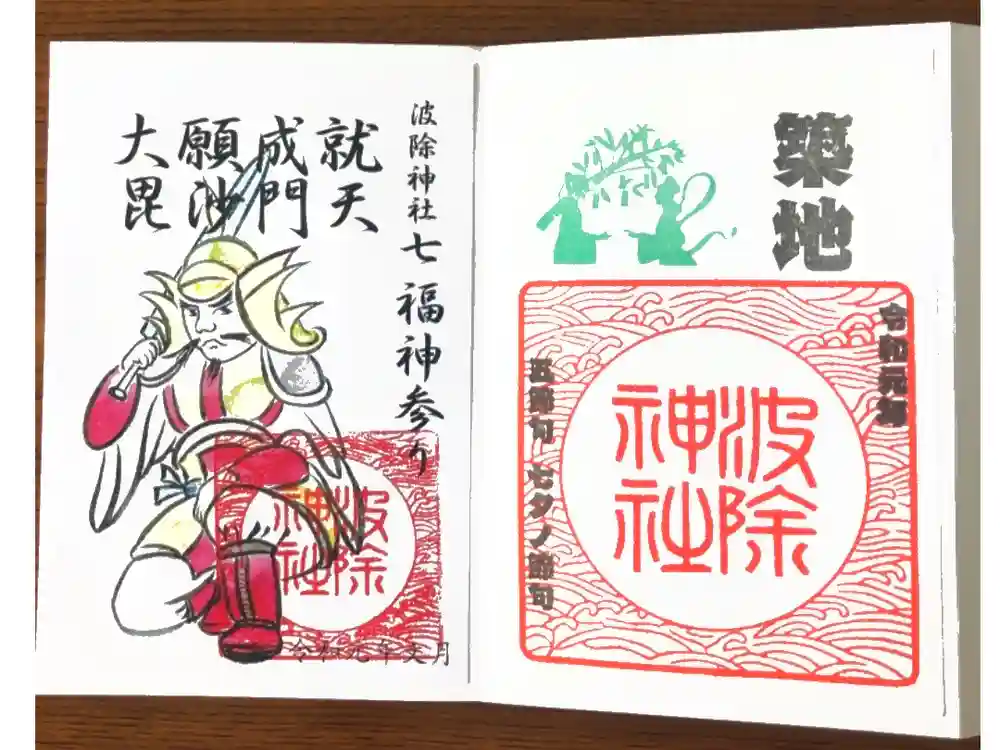 波除神社 七福神参り
大願成就
毘沙門天
波除
神社
令和元年文月
築地
令和元
波除
神社
五節句 七夕ノ節句